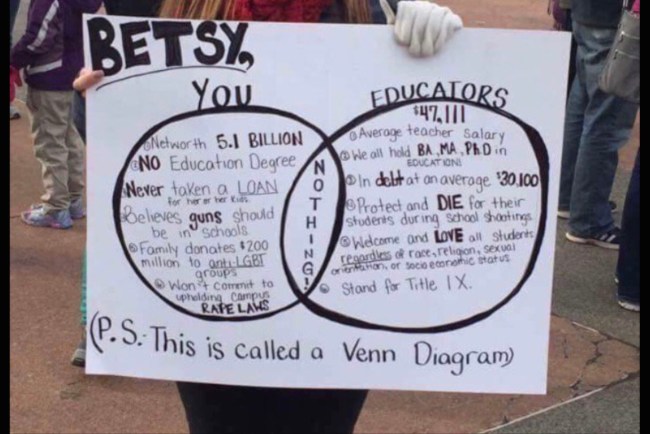 BETSY,
YOU
Networth 5.1 BILLION
NO Education Degree
Never taken a LOAN
for her or her kids.
Believes guns should
be in schools
Family donates $200
million to anti-LGBT
groups
Won't commit to
upholding campus
RAPE LAWS
NOTHING!
EDUCATORS
$47,111
Average teacher salary
We all hold BA, MA, PhD in
EDUCATION!
In debt at an average $30,100
Protect and DIE for their
students during school shootings
Welcome and LOVE all students
regardless of race, religion, sexual
orientation, or socio economic status.
Stand for Title IX.
(P.S.: This is called a Venn Diagram)